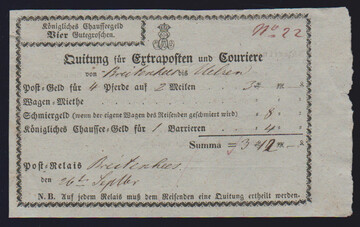 Königliches Chausseegeld
Vier Gutegroschen.
No 22
Quitung für Extraposten und Couriere
von Breitenhees nach Uelzen
Post-Geld für 4 Pferde auf 2 Meilen 32
Wagen-Miethe
Schmiergeld (wenn der eigene Wagen des Reisenden geschmiert wird) 8
Königliches Chaussee-Geld für 1 Barrieren 4
Summa
Post-Relais Breitenhees
den 26ten Septbr
N.B. Auf jedem Relais muß dem Reisenden eine Quitung ertheilt werden.